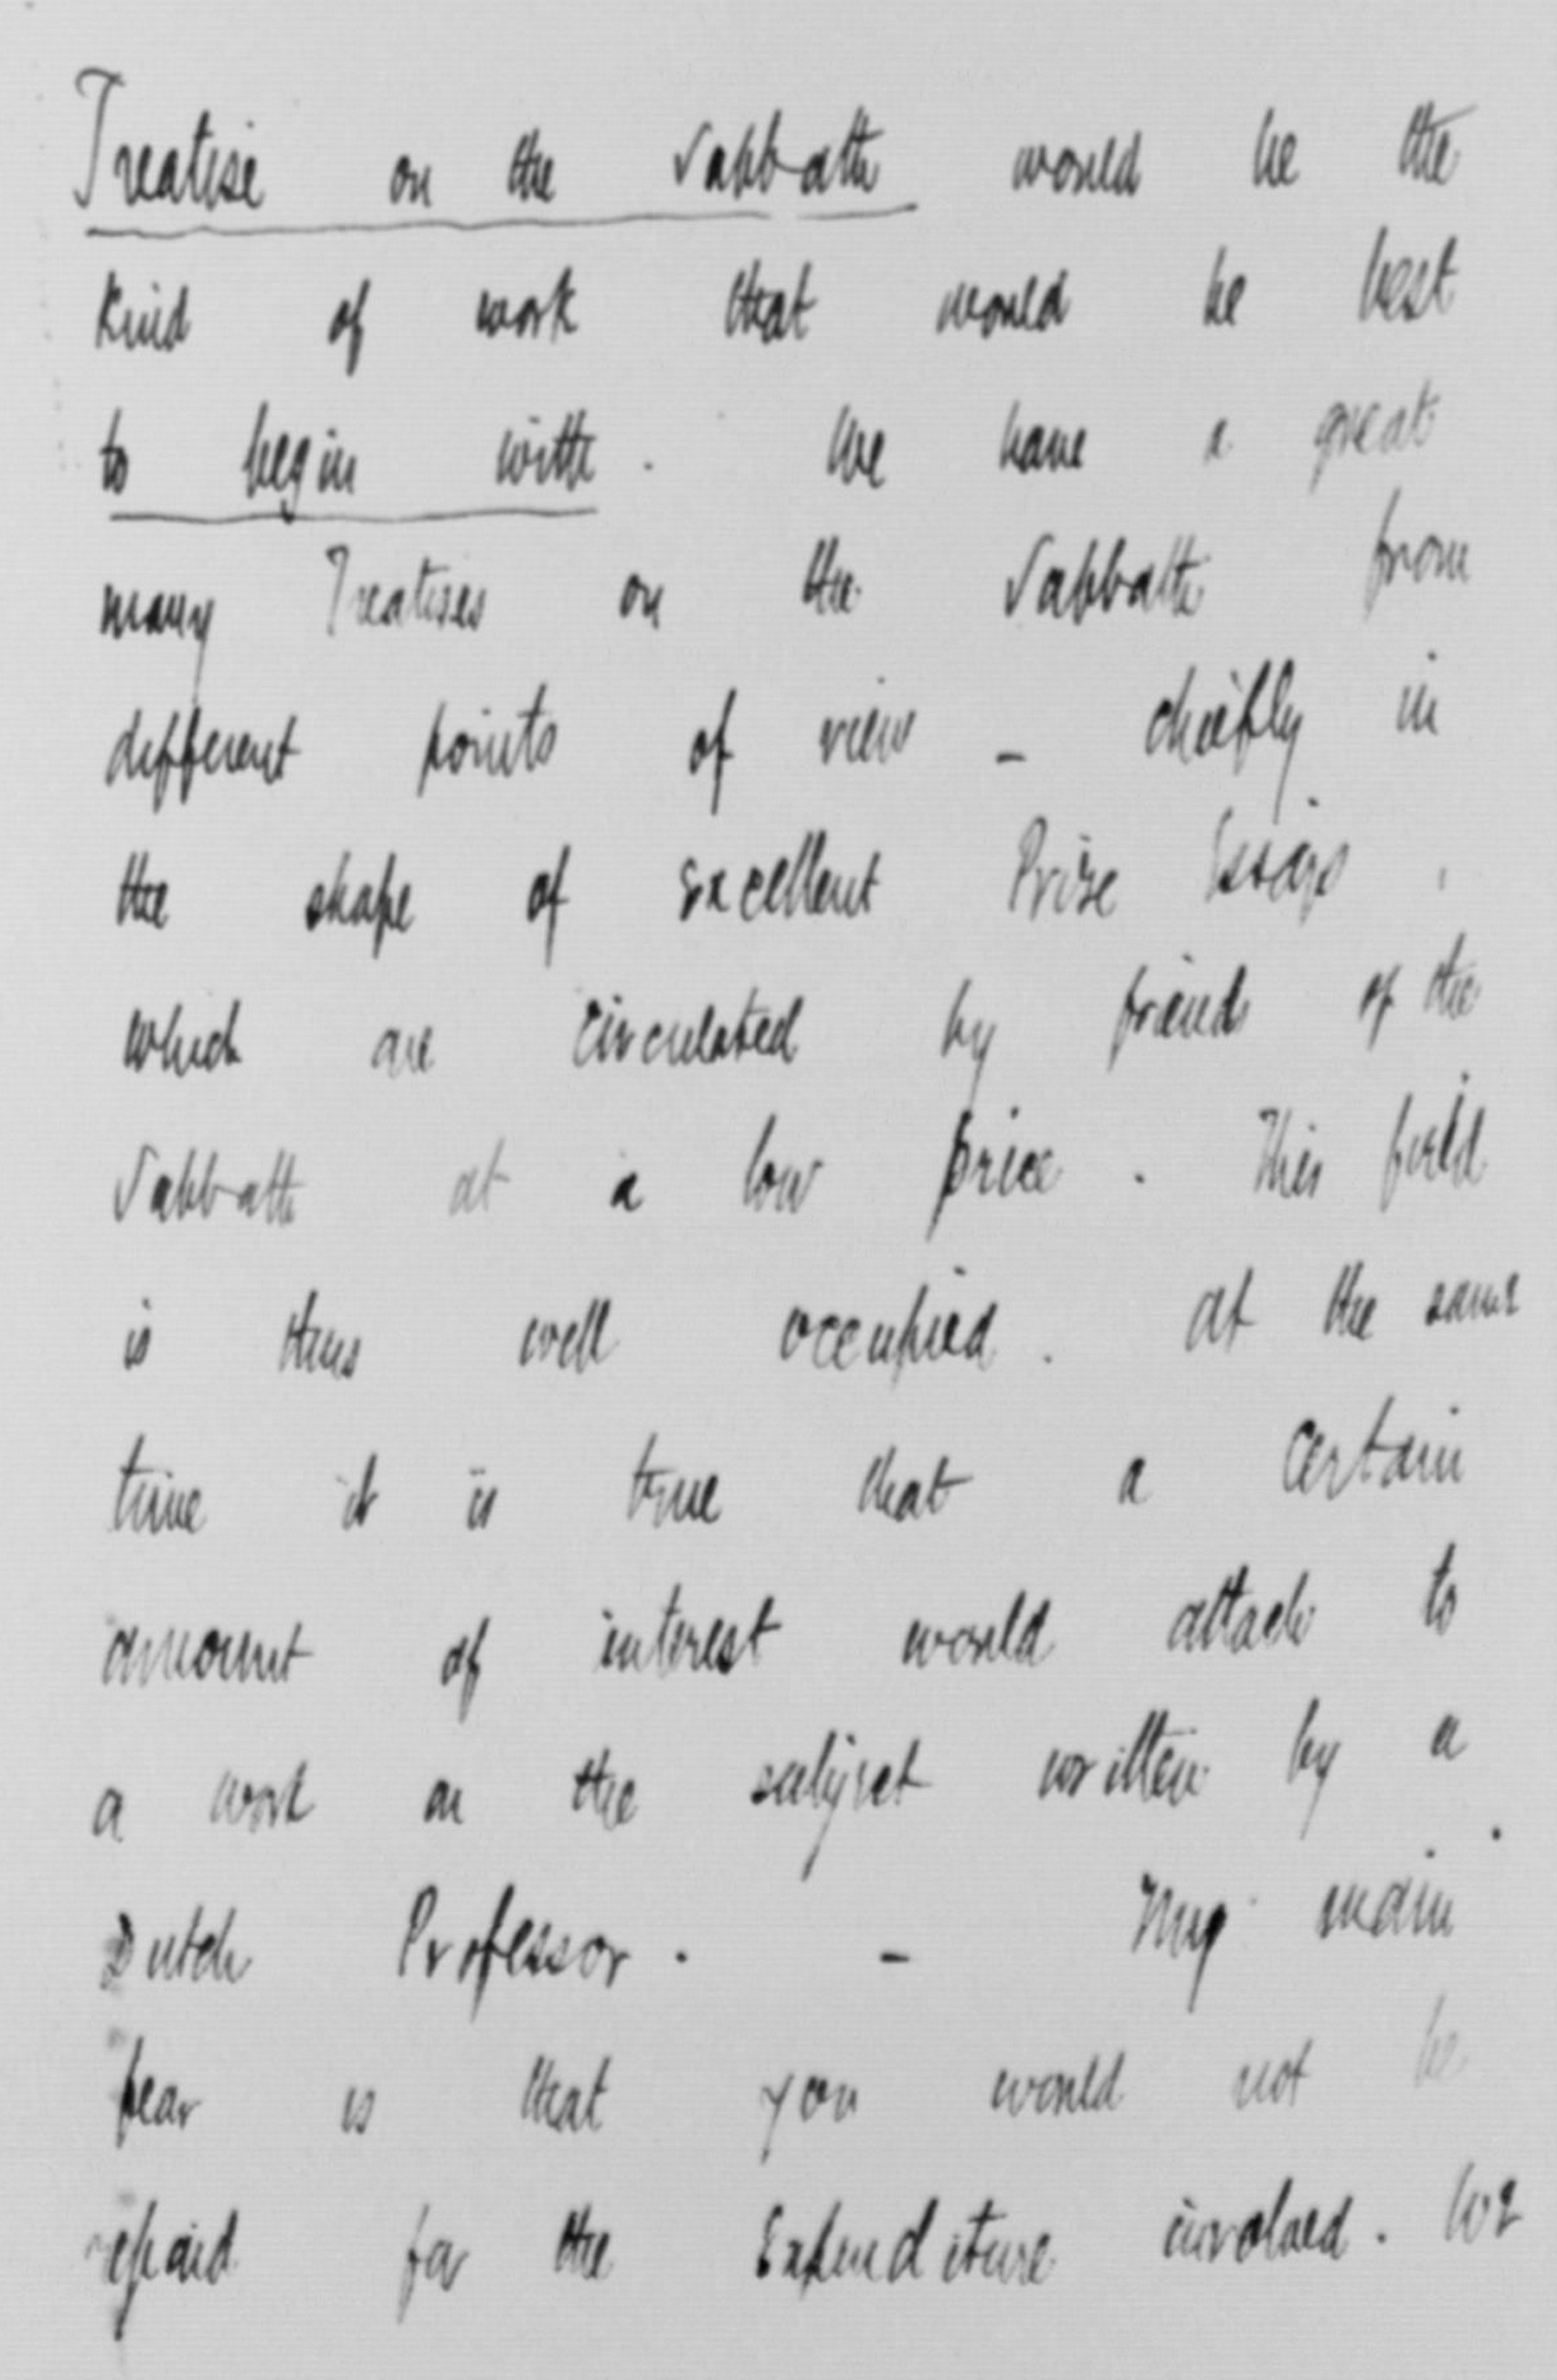 Treatise on the Sabbath would be the
kind of work that would be best
to begin with. We have a great
many Treatises on the Sabbath from
different points of view – chiefly in
the shape of Excellent Prize Essays,
which are circulated by friends of the
Sabbath at a low price. This field
is thus well occupied. At the same
time it is true that a certain
amount of interest would attach to
a work on the subject written by a
Dutch Professor. – My main
fear is that you would not be
repaid for the Expenditure involved. We